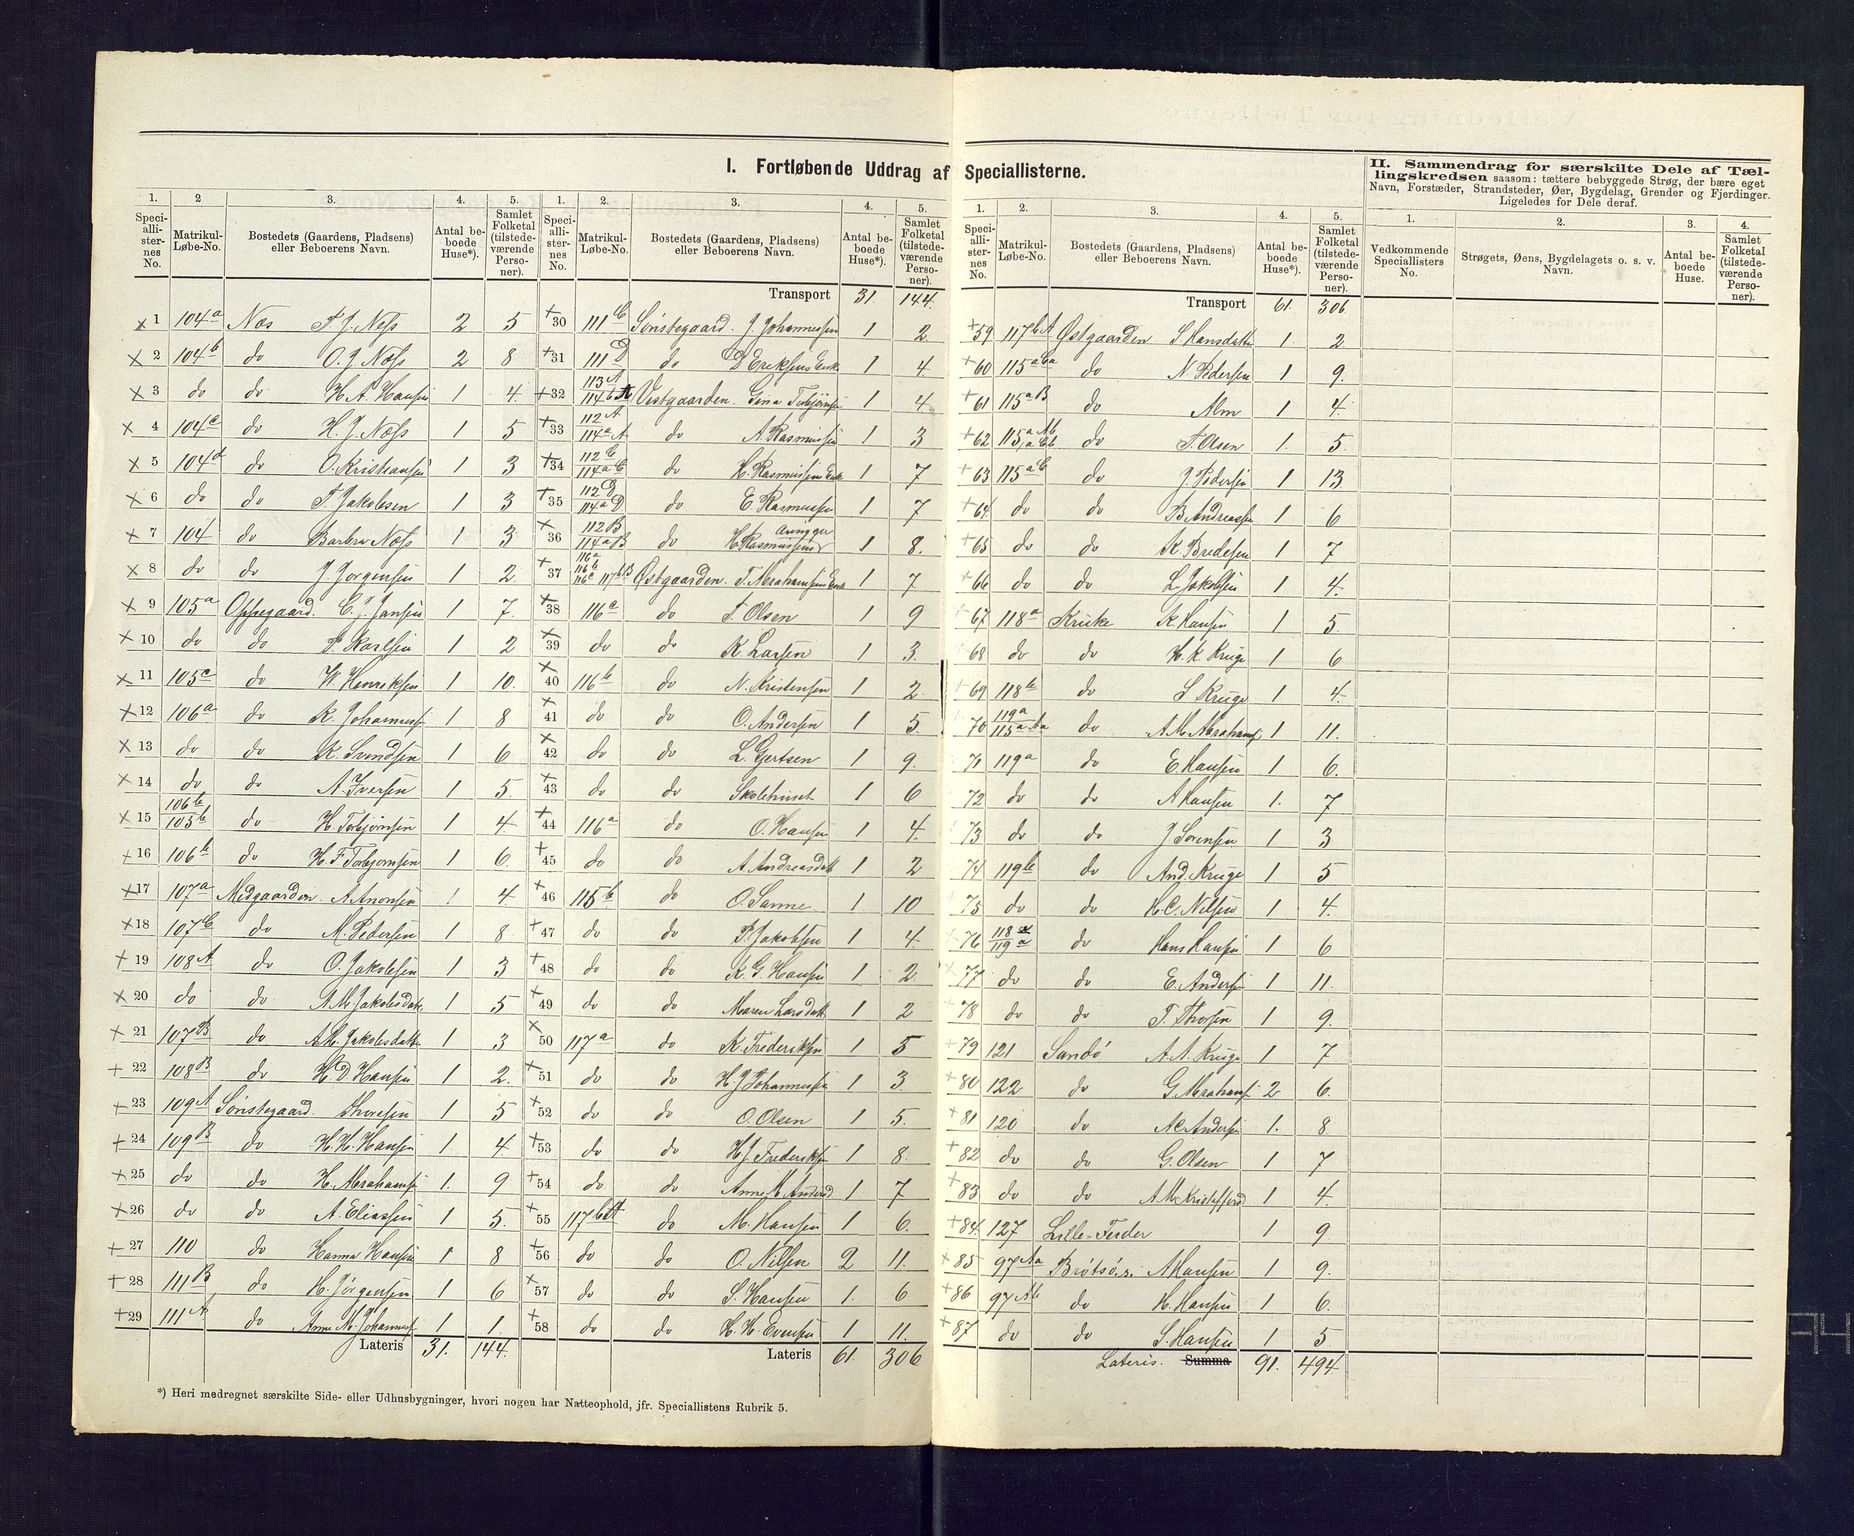 I. Fortløbende Uddrag af Speciallisterne.
II. Sammendrag for særskilte Dele af Tællingskredsen saasom: tættere bebyggede Strøg, der bære eget Navn, Forstæder, Strandsteder, Øer, Bygdelag, Grender og Fjerdinger. Ligeledes for Dele deraf.
1. 2 3. 4. 5.
Speciallisternes No. Matrikul-Løbe-No. Bostedets (Gaardens, Pladsens) eller Beboerens Navn. Antal beboede Huse*). Samlet Folketal (tilstedeværende Personer).
1 104a Næs T J. Næss 2 5
2 104b do O. J. Næss 2 8
3 do do H. A. Hansen 1 4
4 104c do H. J. Næss 1 5
5 104d do O. Kristiansen 1 3
6 do do T. Jakobsen 1 3
7 104 do Barbra Næss 1 3
8 do do J. Jørgensen 1 2.
9 105a Oppegaard. C. J. Jansen 1 7.
10 do do P. Karlsen 1 2
11 105c do W. Henriksen 1 10.
12 106a do K. Johanness 1 8
13 do do K. Svendsen 1 6
14 do do A. Iversen 1 5.
15 106b 105b do H. Torbjørnsen 1 4
16 106b do H. F. Torbjørnsen 1 6.
17 107a Medgaarden A. Anonsen 1 4
18 107C do M. Pedersen 1 8
19 108A do O. Jakobsen 1 3
20 do do A. M. Jakobsdatt 1 5
21 107B do A. M. Jakobsdatt 1 3
22 108B do H D Hansen 1 2.
23 109A Sønstegaard. Thoresen 1 5
24 109B do H. H. Hansen 1 4
25 do do H. Abrahamse 1. 9
26 do do A. Eliassen 1 5.
27 110 do Hanna Hansen 1 8
28 111B do H. Jørgensen 1 6
29 111A do Anne M. Johannes 1 1.
Lateris 31. 144.
*) Heri medregnet særskilte Side- eller Udhusbygninger, hvori nogen har Natteophold, jfr. Speciallistens Rubrik 5.
1. 2. 3. 4. 5.
Speciallisternes No. Matrikul-Løbe-No. Bostedets (Gaardens, Pladsens) eller Beboerens Navn. Antal beboede Huse*). Samlet Folketal (tilstedeværende Personer).
Transport 31 144.
30 111C Sønstegaard. J. Johannessen 1 2.
31 111D do D Eriksens Enk 1 4.
32 113A 114b A Vestgaarden. Gina Torbjørns 1 4.
33 112A 114a A do A. Rasmussen 1 3
34 112C 114a C do H. Rasmussens Enk 1 7
35 112D 114a D do E. Rasmussen 1 7
36 112B 114a B do H. Rasmussens 1 8.
37 116a 116b 116c 117b B Østgaarden. T. Abrahamsens Enk 1 7
38 116c do T. Olsen 1 9
39 do do K. Larsen 1 3.
40 116b do N. Kristensen 1 2.
41 do do O. Andersen 1 5.
42 do do L. Gjertsen 1 9.
43 do do Skolehuset 1 6
44 116a do O. Hansen 1 4.
45 do do A. Andreasdatt 1 2
46 115b do O. Sanne 1 10
47 do do P. Jakobsen 1 4.
48 do do K. G. Hansen 1 2.
49 do do Maren Larsdatt 1 2
50 117a do K. Frederiksen 1 5
51 do do H. J. Johannessen 1 3
52 do do O. Olsen 1 5.
53 do do H. J. Frederiksen 1 8.
54 do do Anne M Andersd 1 7
55 117b A do M. Hansen 1 6.
56 do do O. Nilsen 2 11.
57 do do S. Hansen 1. 6
58 do do H. H. Evensen 1 11.
Lateris 61. 306
1. 2. 3. 4. 5.
Speciallisternes No. Matrikul-Løbe-No. Bostedets (Gaardens, Pladsens) eller Beboerens Navn. Antal beboede Huse*). Samlet Folketal (tilstedeværende Personer).
Transport 61. 306.
59 117b A Østgaarden S Hansdatt 1. 2
60 115a Ca do N. Pedersen 1 9.
61 115a B do Alm 1 4
62 115a Ab a Cb do T. Olsen 1. 5.
63 115a C do J. Pedersen 1 13
64 do do B. Andreassen 1 6
65 do do K. Bredesen 1 7
66 do do L. Jakobsen 1 4.
67 118a Kruke K. Hansen 1 5.
68 do do H. K Kruge 1 6
69 118b do S Kruge 1 4.
70 119a 115a Aa do A. M. Abrahams 1 11.
71 119a do E. Hansen 1 6.
72 do do A Hansen 1. 7
73 do do J. Sørensen 1 3
74 119b do And. Kruge 1 5
75 do do H. C. Nilsen 1 4.
76 118 a 119a do Hans Hansen 1 6
77 do do E. Andersen 1 11.
78 do do T. Thorsen 1 9.
79 121 Sandø A. A. Kruge 1 7
80 122 do G. Abrahams 2 6.
81 120 do A C Andersen 1. 8
82 do do G. Olsen 1 7
83 do do A M Kristoffersd 1 4.
84. 127 Lille-Færder 1 9
85 97Aa Brøtsø. A Hansen 1 9.
86 97Ab do H. Hansen 1 6.
87 do do S. Hansen 1 5
Lateris. Summa 91. 494.
1. 2. 3. 4.
Vedkommende Speciallisters No. Strøgets, Øens, Bygdelagets o. s. v. Navn. Antal beboede Huse. Samlet Folketal (tilstedeværende Personer).